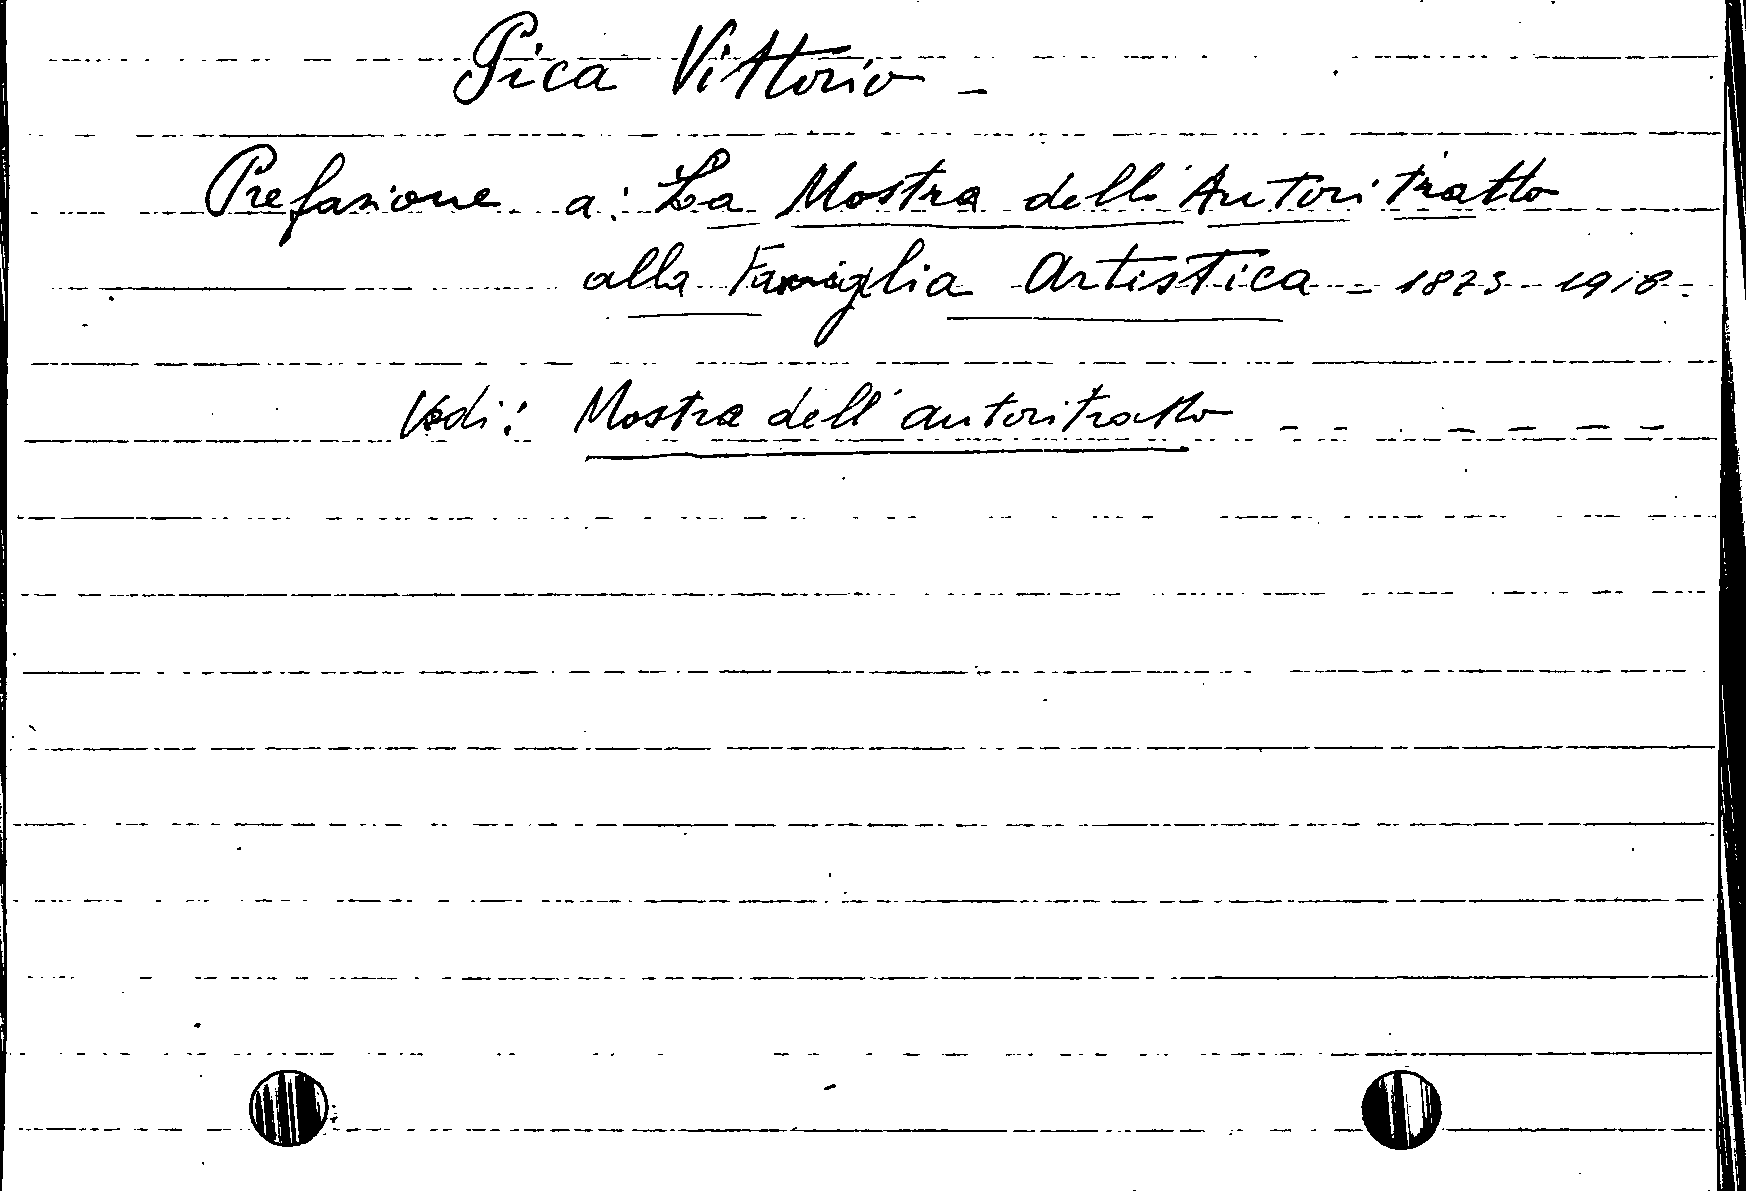 Pica Vittorio -
Prefazione a: La Mostra dell'Autoritratto
alla Famiglia Artistica - 1873 - 1918.
Vedi: Mostra dell'autoritratto - - - - - - -